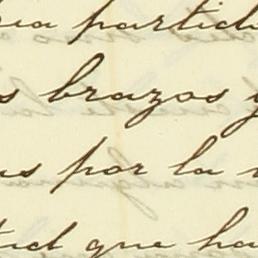 particu
s brazos y
us por la
tud que ha